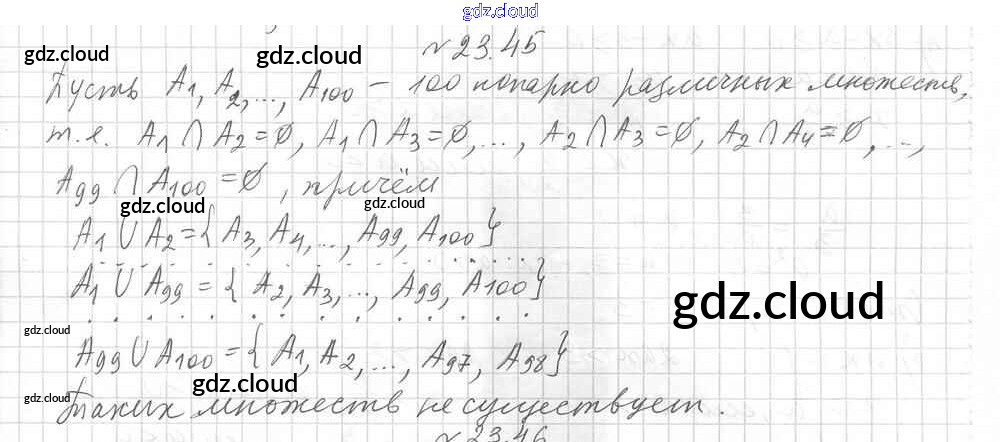 gdz.cloud
№ 23.45
gdz.cloud gdz.cloud
Пусть A1, A2, ..., A100 – 100 попарно различных множеств,
т.е. A1 ∩ A2 = ∅, A1 ∩ A3 = ∅, ..., A2 ∩ A3 = ∅, A2 ∩ A4 = ∅, ...,
A99 ∩ A100 = ∅, причём
gdz.cloud gdz.cloud
A1 ∪ A2 = { A3, A4, ..., A99, A100 }
. . . . . . . . . . . . . . . .
A1 ∪ A99 = { A2, A3, ..., A99, A100 }
gdz.cloud
. . . . . . . . . . . . . .
gdz.cloud
A99 ∪ A100 = { A1, A2, ..., A97, A98 }
gdz.cloud
gdz.cloud
Таких множеств не существует.
№ 23.46